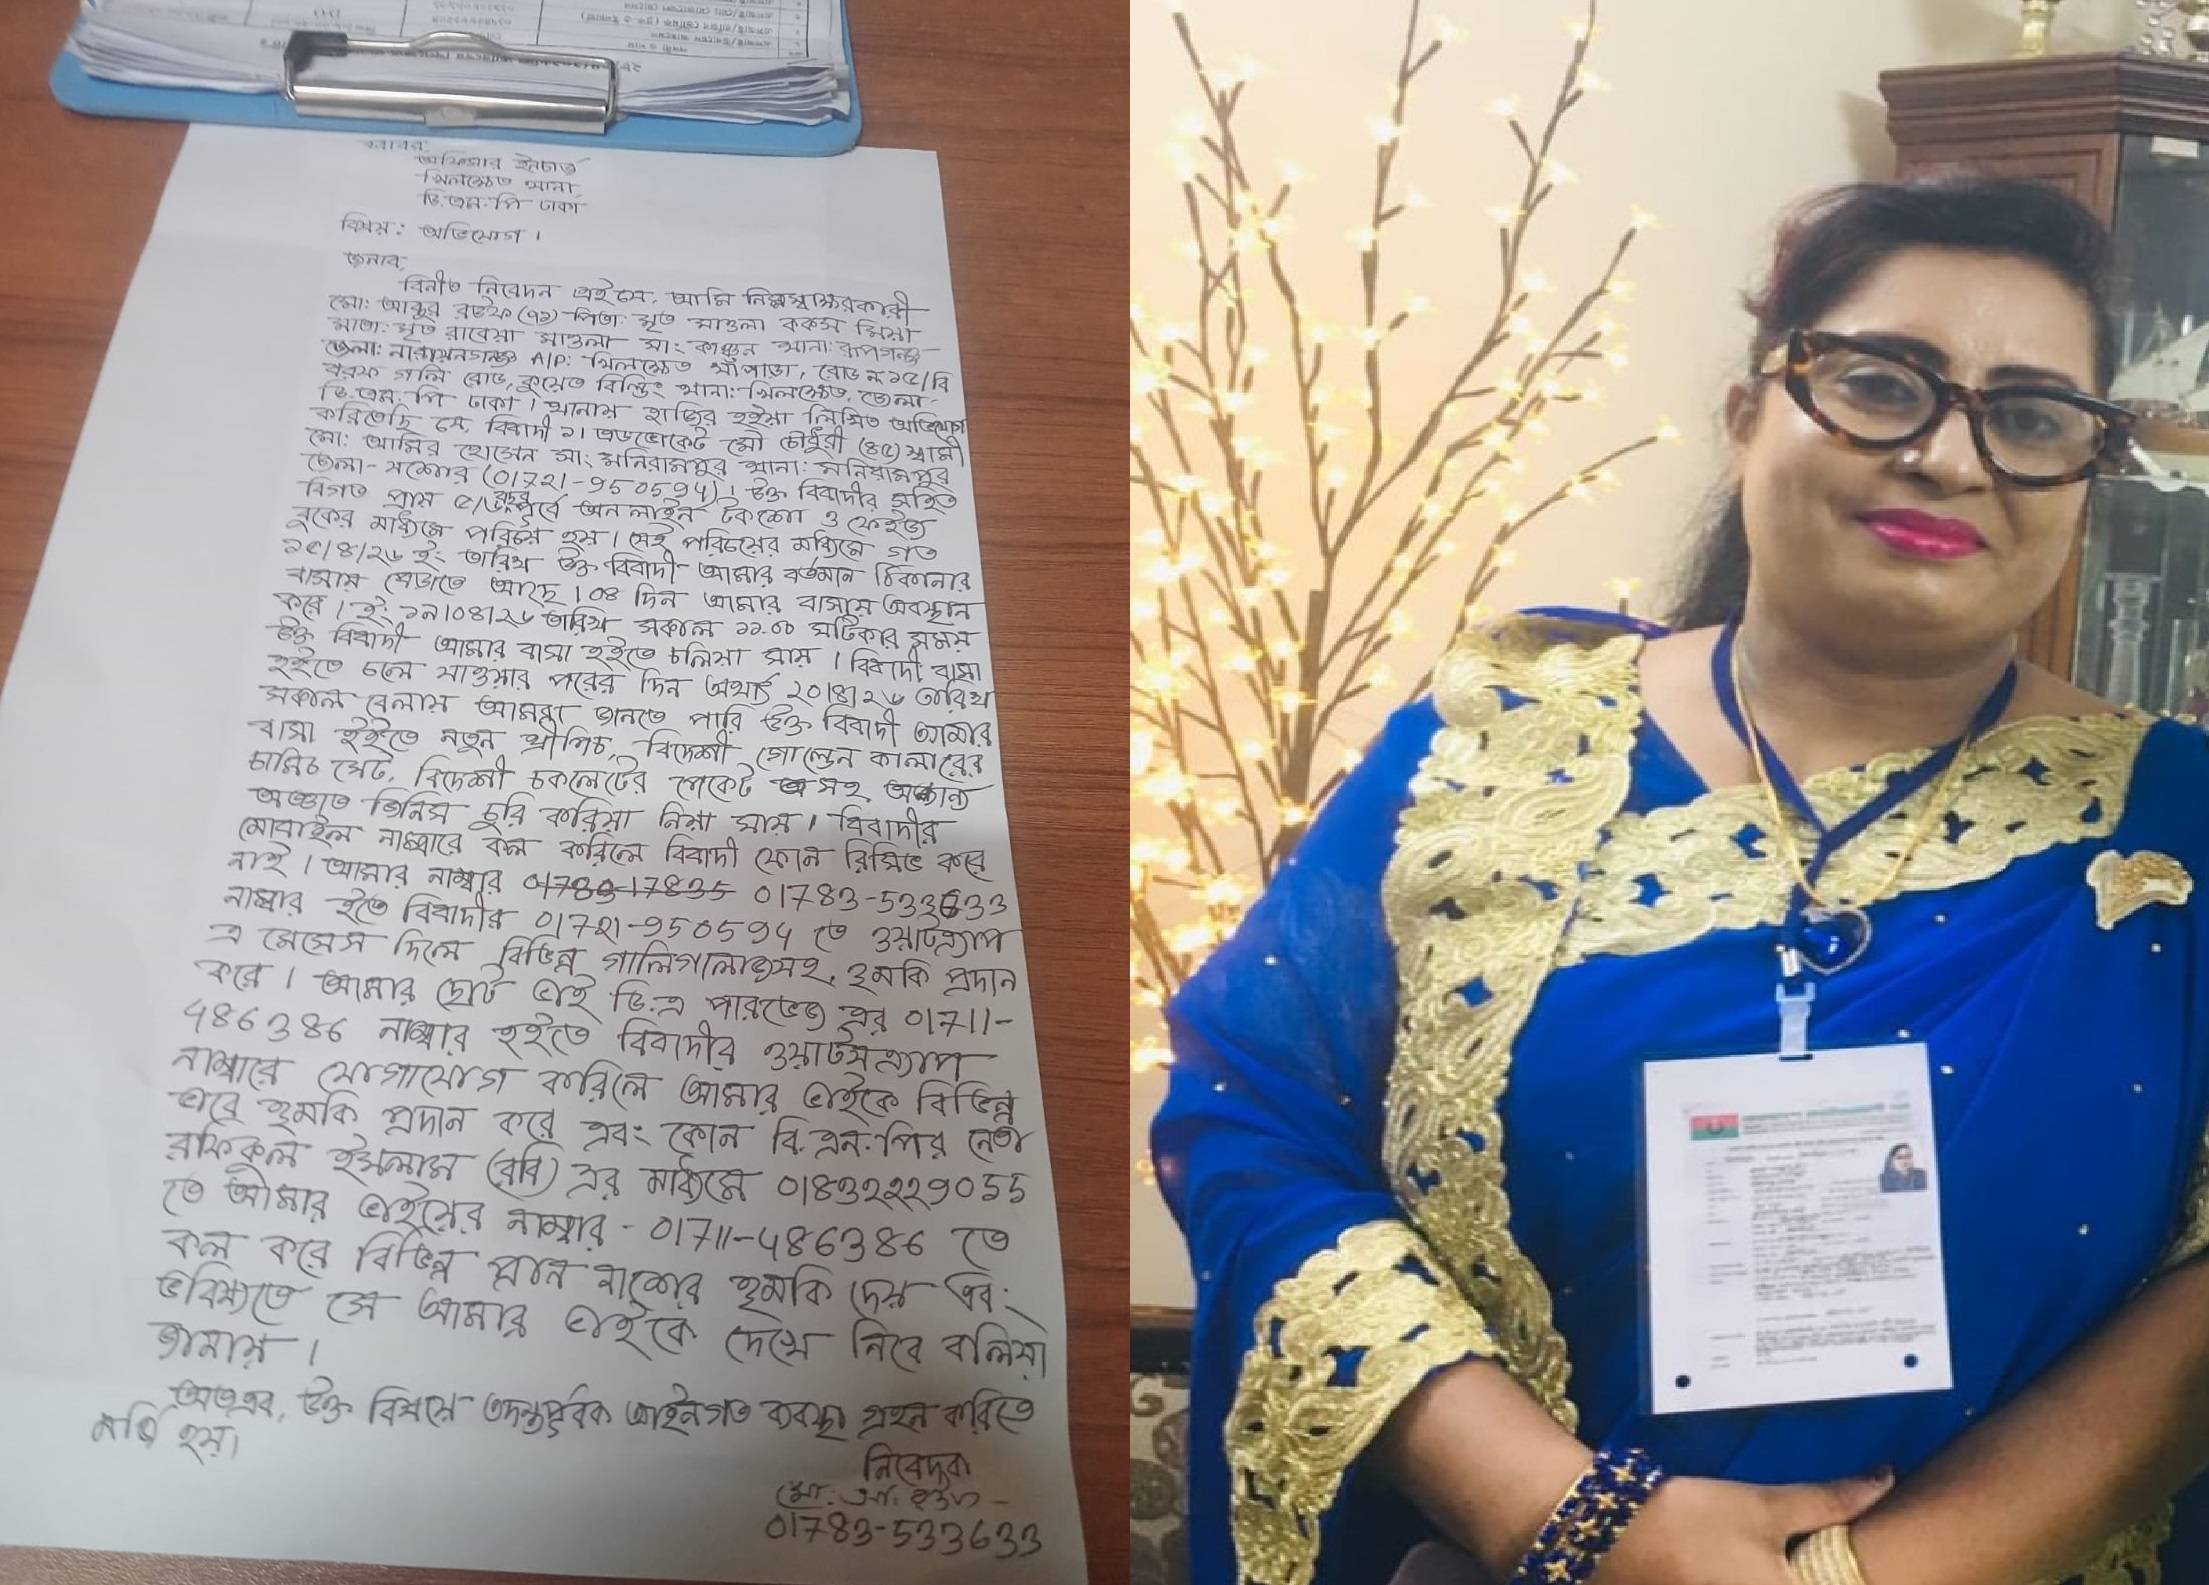 বরাবর,
অফিসার ইনচার্জ
খিলক্ষেত থানা,
ডি.এম.পি ঢাকা
বিষয়: অভিযোগ।
জনাব,
বিনীত নিবেদন এইযে, আমি নিম্নস্বাক্ষরকারী
মো: আব্দুর রউফ (৭১) পিতা: মৃত মাওলা বকস মিয়া
মাতা: মৃত রাবেয়া মাওলা সাং কাঞ্চন থানা: রূপগঞ্জ
জেলা: নারায়নগঞ্জ A/P: খিলক্ষেত খাঁপাড়া, রোড নং ১৫/বি
বরফ গলি রোড, কুয়েত বিল্ডিং থানা: খিলক্ষেত, জেলা-
ডি.এম.পি ঢাকা। থানায় হাজির হইয়া লিখিত অভিযোগ
করিতেছি যে, বিবাদী ১। এডভোকেট মৌ চৌধুরী (৪৫) স্বামী
মো: আমির হোসেন সাং মনিরামপুর থানা: মনিরামপুর
জেলা- যশোর (01721-950594)। উক্ত বিবাদীর সহিত
বিগত প্রায় ৫/৬ বছর পূর্বে অনলাইন টকশো ও ফেইজ
বুকের মাধ্যমে পরিচয় হয়। সেই পরিচয়ের মাধ্যমে গত
১৫/৪/২৬ ইং তারিখ উক্ত বিবাদী আমার বর্তমান ঠিকানার
বাসায় বেড়াতে আছে। 04 দিন আমার বাসায় অবস্থান
করে। ইং ১৯/04/২৬ তারিখ সকাল ১১.০০ ঘটিকার সময়
উক্ত বিবাদী আমার বাসা হইতে চলিয়া যায়। বিবাদী বাসা
হইতে চলে যাওয়ার পরের দিন অর্থাৎ ২০/৪/২৬ তারিখ
সকাল বেলায় আমরা জানতে পারি উক্ত বিবাদী আমার
বাসা হইতে নতুন থ্রীপিচ, বিদেশী গোল্ডেন কালারের
চামিচ সেট, বিদেশী চকলেটের পেকেট সহ অন্যান্য
জিনিস চুরি করিয়া নিয়া যায়। বিবাদীর
মোবাইল নাম্বারে কল করিলে বিবাদী ফোন রিসিভ করে
নাই। আমার নাম্বার 01783-17835 01783-533633
নাম্বার হইতে বিবাদীর 01721-950594 তে ওয়াটস্যাপ
এ মেসেস দিলে বিভিন্ন গালিগালাজসহ হুমকি প্রদান
করে। আমার ছোট ভাই ডি.এ পারভেজ এর 01711-
486386 নাম্বার হইতে বিবাদীর ওয়াটসএ্যাপ
নাম্বারে যোগাযোগ করিলে আমার ভাইকে বিভিন্ন
ভাবে হুমকি প্রদান করে এবং কোন বি.এন.পির নেতা
রফিকুল ইসলাম (রবি) এর মাধ্যমে 01832229055
তে আমার ভাইয়ের নাম্বার - 01711-486386 তে
কল করে বিভিন্ন প্রান নাশের হুমকি দেয় এবং
ভবিষ্যতে সে আমার ভাইকে দেখে নিবে বলিয়া
জানায়।
অতএব, উক্ত বিষয়ে তদন্তপূর্বক আইনগত ব্যবস্থা গ্রহন করিতে
মর্জি হয়।
নিবেদক
মো: আ: রউফ
01783-533633